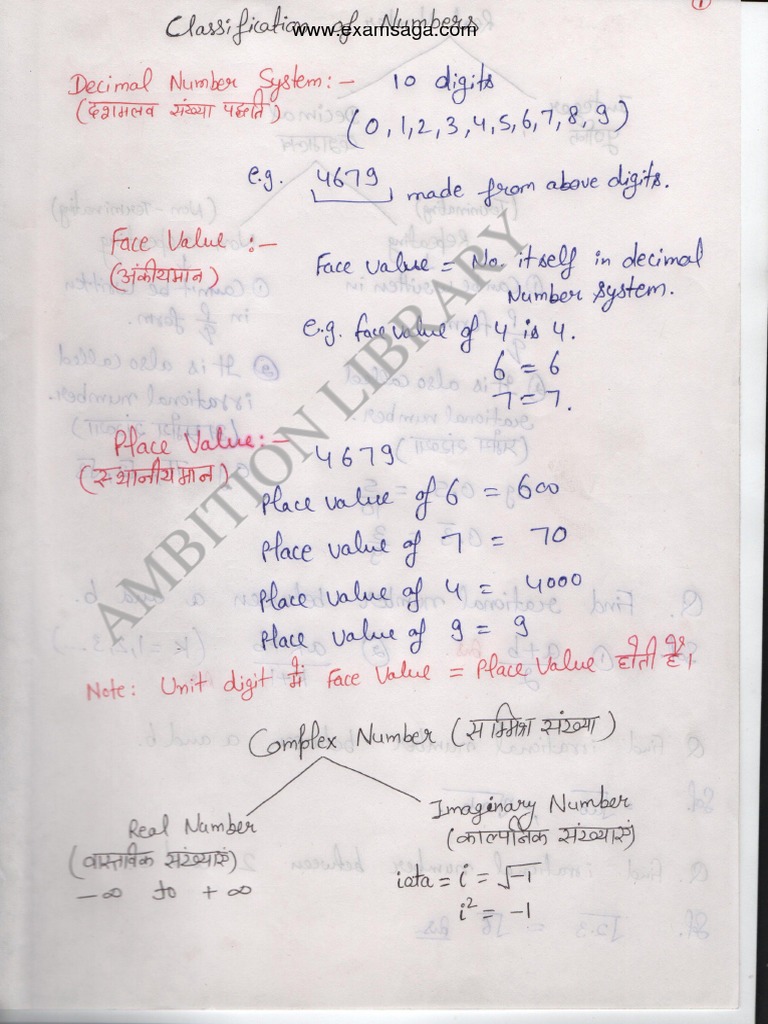 1
Classification of Numbers
www.examsaga.com
Decimal Number System:- 10 digits
(दशमलव संख्या पद्धति)
(0,1,2,3,4,5,6,7,8,9)
e.g. 4679 made from above digits.
Face Value :-
(अंकीयमान)
Face value = No. itself in decimal
Number system.
e.g. face value of 4 is 4.
6 = 6
7 = 7.
Place Value:-
(स्थानीयमान)
4679
Place value of 6 = 600
Place value of 7 = 70
Place value of 4 = 4000
Place value of 9 = 9
Note: Unit digit में Face Value = Place Value होती है।
AMBITION LIBRARY
Complex Number (सम्मिश्र संख्या)
Real Number
(वास्तविक संख्याएं)
-∞ to +∞
Imaginary Number
(काल्पनिक संख्याएं)
iota = i = √-1
i² = -1